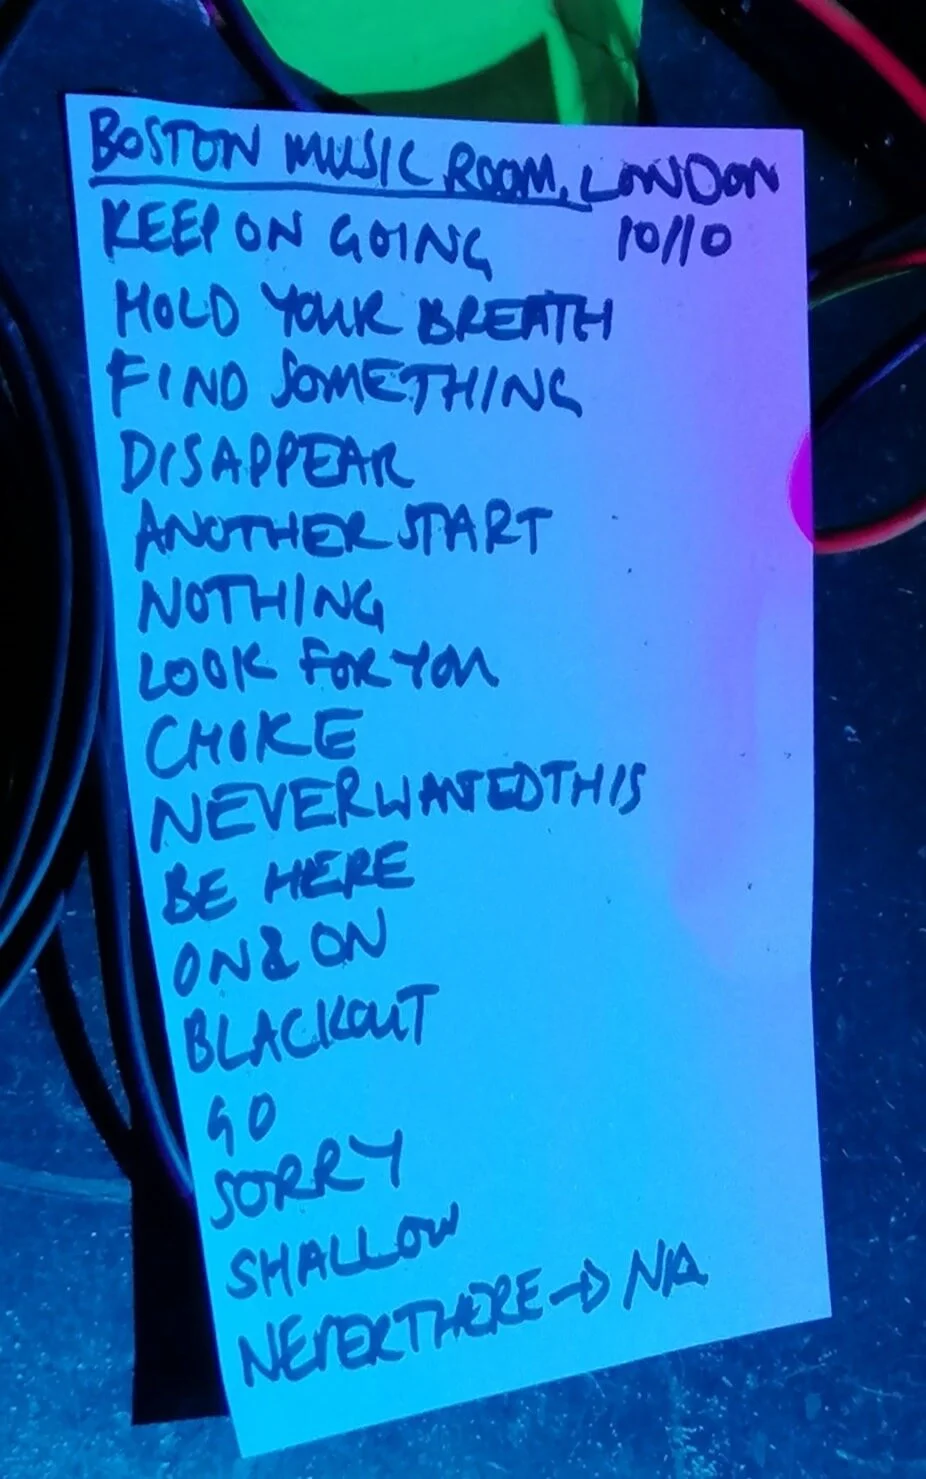 BOSTON MUSIC ROOM, LONDON
10/10
KEEP ON GOING
HOLD YOUR BREATH
FIND SOMETHING
DISAPPEAR
ANOTHER START
NOTHING
LOOK FOR YOU
CHOKE
NEVERWANTEDTHIS
BE HERE
ON & ON
BLACKOUT
GO
SORRY
SHALLOW
NEVERTHERE → N/A